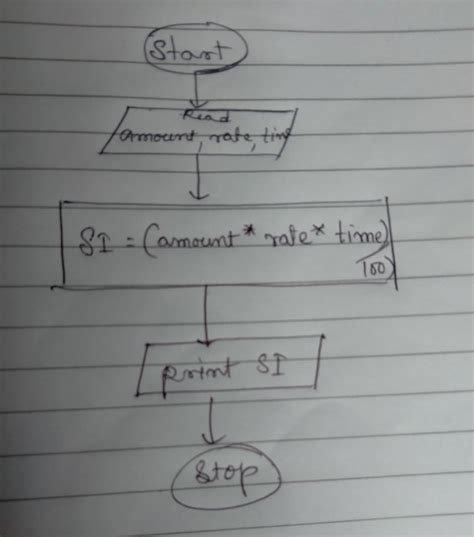 Start
Read
amount, rate, time
SI = (amount * rate * time)
/100)
print SI
Stop